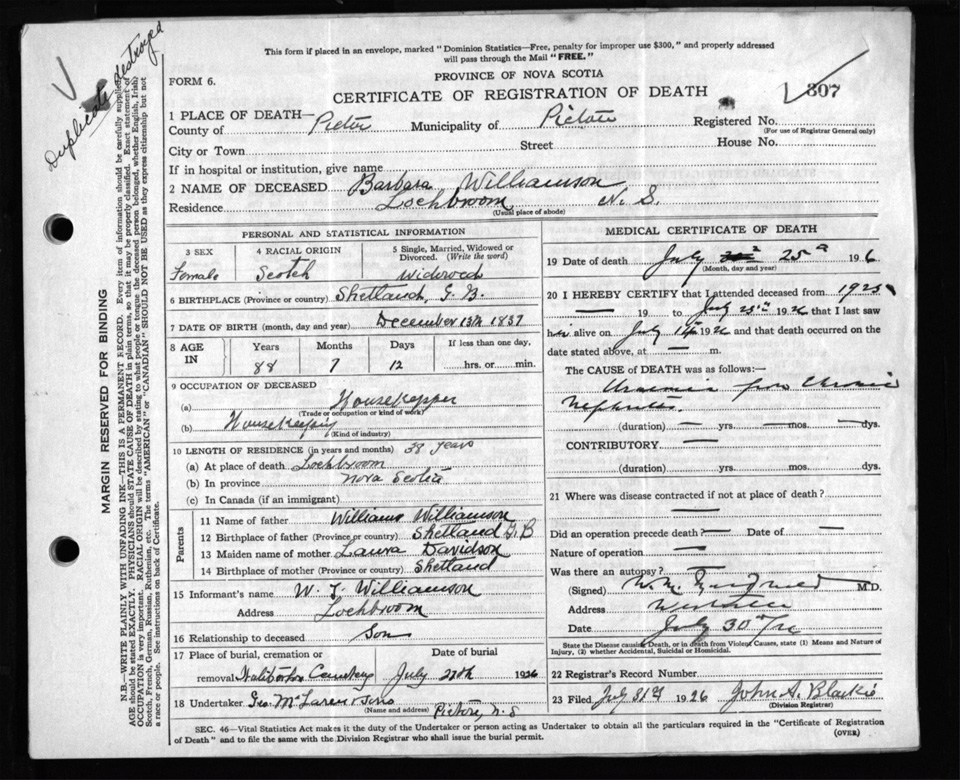 This form if placed in an envelope, marked "Dominion Statistics—Free, penalty for improper use $300," and properly addressed
will pass through the Mail "FREE."
Duplicate destroyed
FORM 6.
PROVINCE OF NOVA SCOTIA
CERTIFICATE OF REGISTRATION OF DEATH
807
1 PLACE OF DEATH—
County of Pictou Municipality of Pictou Registered No.
(For use of Registrar General only)
City or Town Street House No.
If in hospital or institution, give name
2 NAME OF DECEASED Barbara Williamson
Residence Lochbroom N. S.
(Usual place of abode)
PERSONAL AND STATISTICAL INFORMATION
3 SEX 4 RACIAL ORIGIN 5 Single, Married, Widowed or Divorced. (Write the word)
Female Scotch Widowed
6 BIRTHPLACE (Province or country) Shetland, G. B.
7 DATE OF BIRTH (month, day and year) December 13th 1837
8 AGE IN Years Months Days If less than one day,
88 7 12 hrs. or min.
9 OCCUPATION OF DECEASED
(a) Housekeeper
(Trade or occupation or kind of work)
(b) Housekeeping
(Kind of industry)
10 LENGTH OF RESIDENCE (in years and months) 38 years
(a) At place of death Lochbroom
(b) In province Nova Scotia
(c) In Canada (if an immigrant)
Parents
11 Name of father William Williamson
12 Birthplace of father (Province or country) Shetland G B
13 Maiden name of mother Laura Davidson
14 Birthplace of mother (Province or country) Shetland
15 Informant's name W. J. Williamson
Address Lochbroom
16 Relationship to deceased Son
17 Place of burial, cremation or removal Date of burial
Haliburton Cemetery July 27th 1926
18 Undertaker Geo. McLaren & Sons
(Name and address) Pictou, N. S
MEDICAL CERTIFICATE OF DEATH
19 Date of death July 25 1926
(Month, day and year)
20 I HEREBY CERTIFY that I attended deceased from 1925
— 19 to July 25th 1926 that I last saw
her alive on July 14 1926 and that death occurred on the
date stated above, at — m.
The CAUSE of DEATH was as follows:—
Uraemia from Chronic
Nephritis.
(duration) — yrs. — mos. — dys.
CONTRIBUTORY —
(duration) yrs. mos. dys.
21 Where was disease contracted if not at place of death?
—
Did an operation precede death? — Date of —
Nature of operation —
Was there an autopsy? —
(Signed) M.D.
Address
Date July 30 /26
State the Disease causing Death, or in Death from Violent Causes, state (1) Means and Nature of
Injury, (2) whether Accidental, Suicidal or Homicidal.
22 Registrar's Record Number
23 Filed July 31st 1926 John A. Blaikie
(Division Registrar)
SEC. 46—Vital Statistics Act makes it the duty of the Undertaker or person acting as Undertaker to obtain all the particulars required in the "Certificate of Registration
of Death" and to file the same with the Division Registrar who shall issue the burial permit.
(OVER)
MARGIN RESERVED FOR BINDING
N.B.—WRITE PLAINLY WITH UNFADING INK—THIS IS A PERMANENT RECORD. Every item of information should be carefully supplied.
AGE should be stated EXACTLY. PHYSICIANS should STATE CAUSE OF DEATH in plain terms, so that it may be properly classified. Exact statement of
OCCUPATION is very important. RACIAL ORIGIN will be described by stating to what people or tongue the deceased person belonged, whether English, Irish,
Scotch, French, German, Russian, Ruthenian, etc. The terms "AMERICAN" or "CANADIAN" SHOULD NOT BE USED as they express citizenship but not
a race or people. See instructions on back of Certificate.